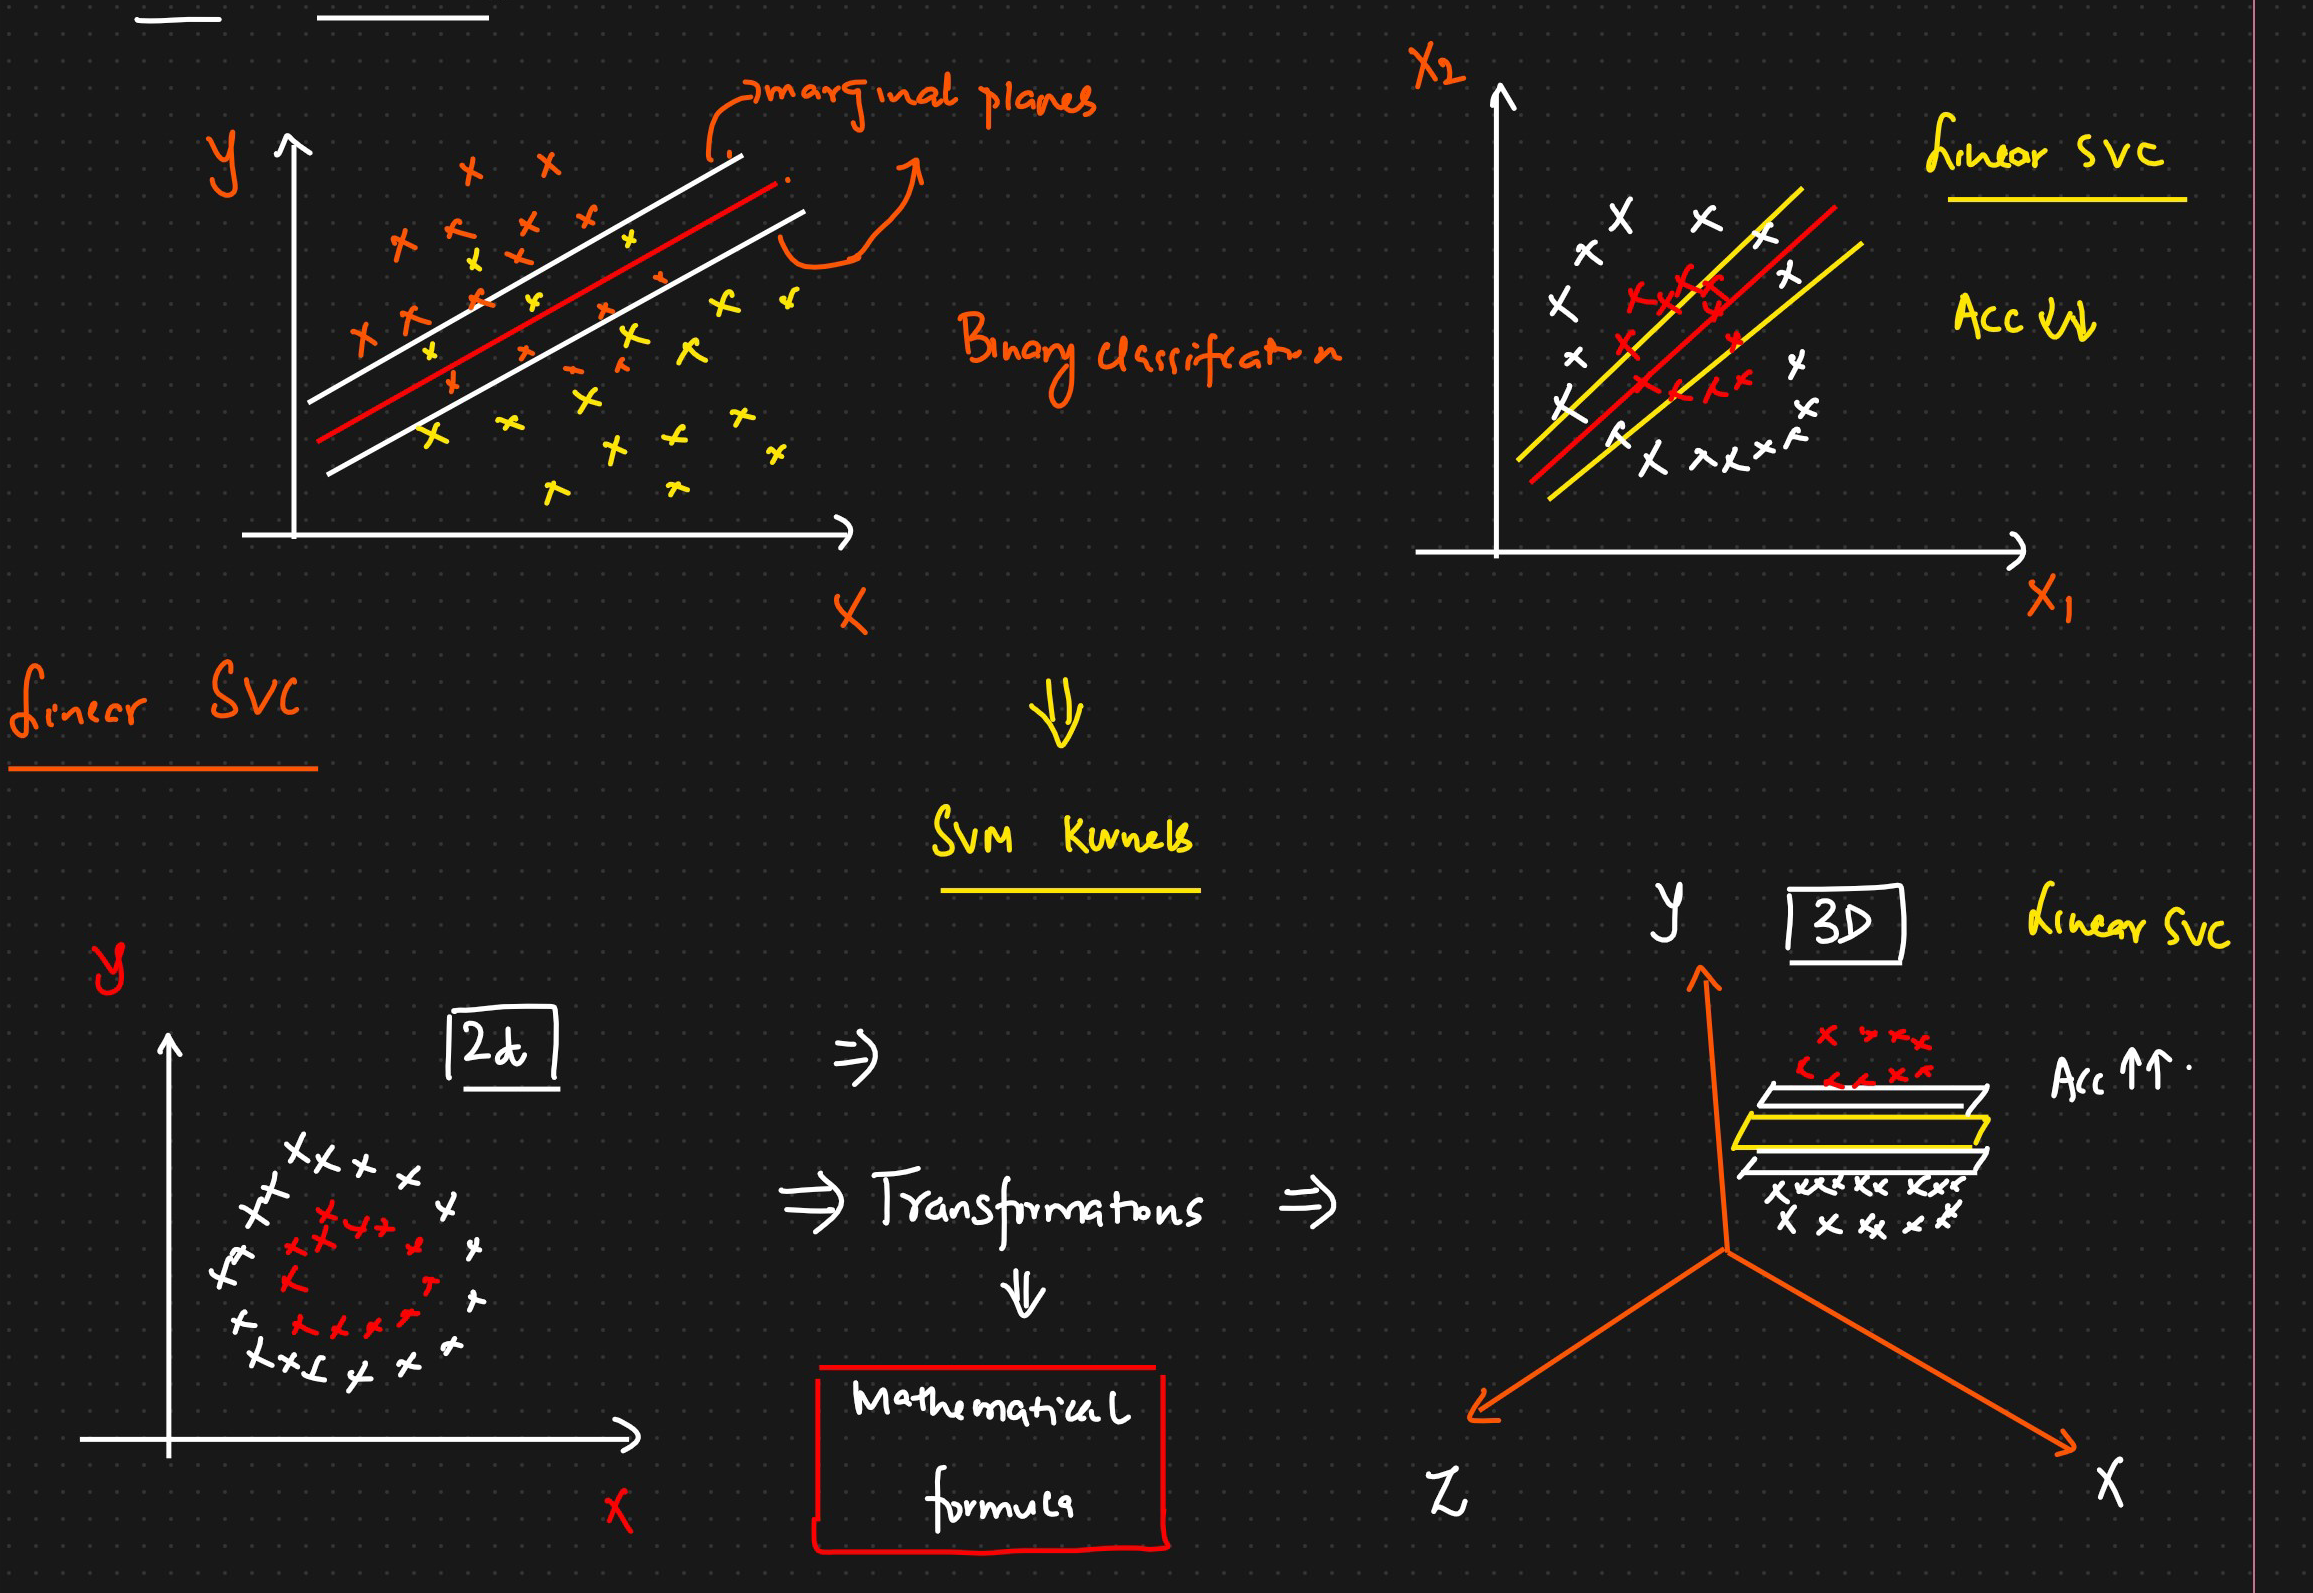 marginal planes
y
Binary classification
X
X2
Linear SVC
Acc ↓↓
X1
Linear SVC
⇓
SVM Kernels
y
2d
⇒
X
⇒ Transformations ⇒
⇓
Mathematical
formula
y
3D
Linear SVC
Acc ↑↑
Z
X